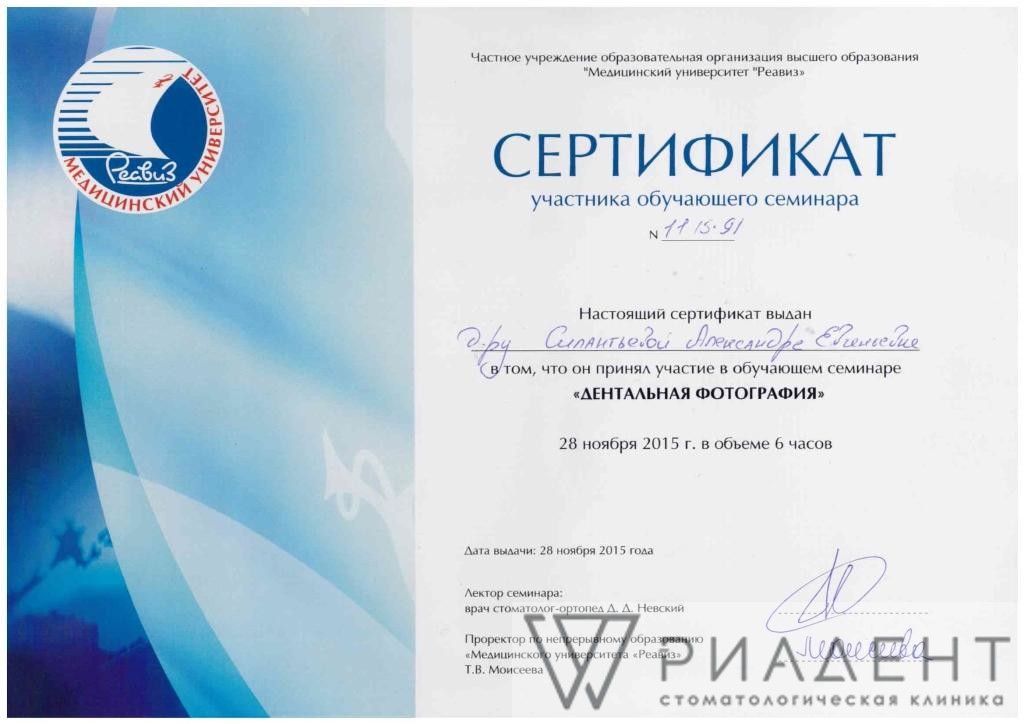 Частное учреждение образовательная организация высшего образования
"Медицинский университет "Реавиз»
МЕДИЦИНСКИЙ УНИВЕРСИТЕТ
Реавиз
СЕРТИФИКАТ
участника обучающего семинара
N 11 15-91
Настоящий сертификат выдан
д-ру Силантьевой Александре Евгеньевне
в том, что он принял участие в обучающем семинаре
«ДЕНТАЛЬНАЯ ФОТОГРАФИЯ»
28 ноября 2015 г. в объеме 6 часов
Дата выдачи: 28 ноября 2015 года
Лектор семинара:
врач стоматолог-ортопед Д. Д. Невский
Проректор по непрерывному образованию
«Медицинского университета «Реавиз»
Т.В. Моисеева
Моисеева
РИАДЕНТ
стоматологическая клиника